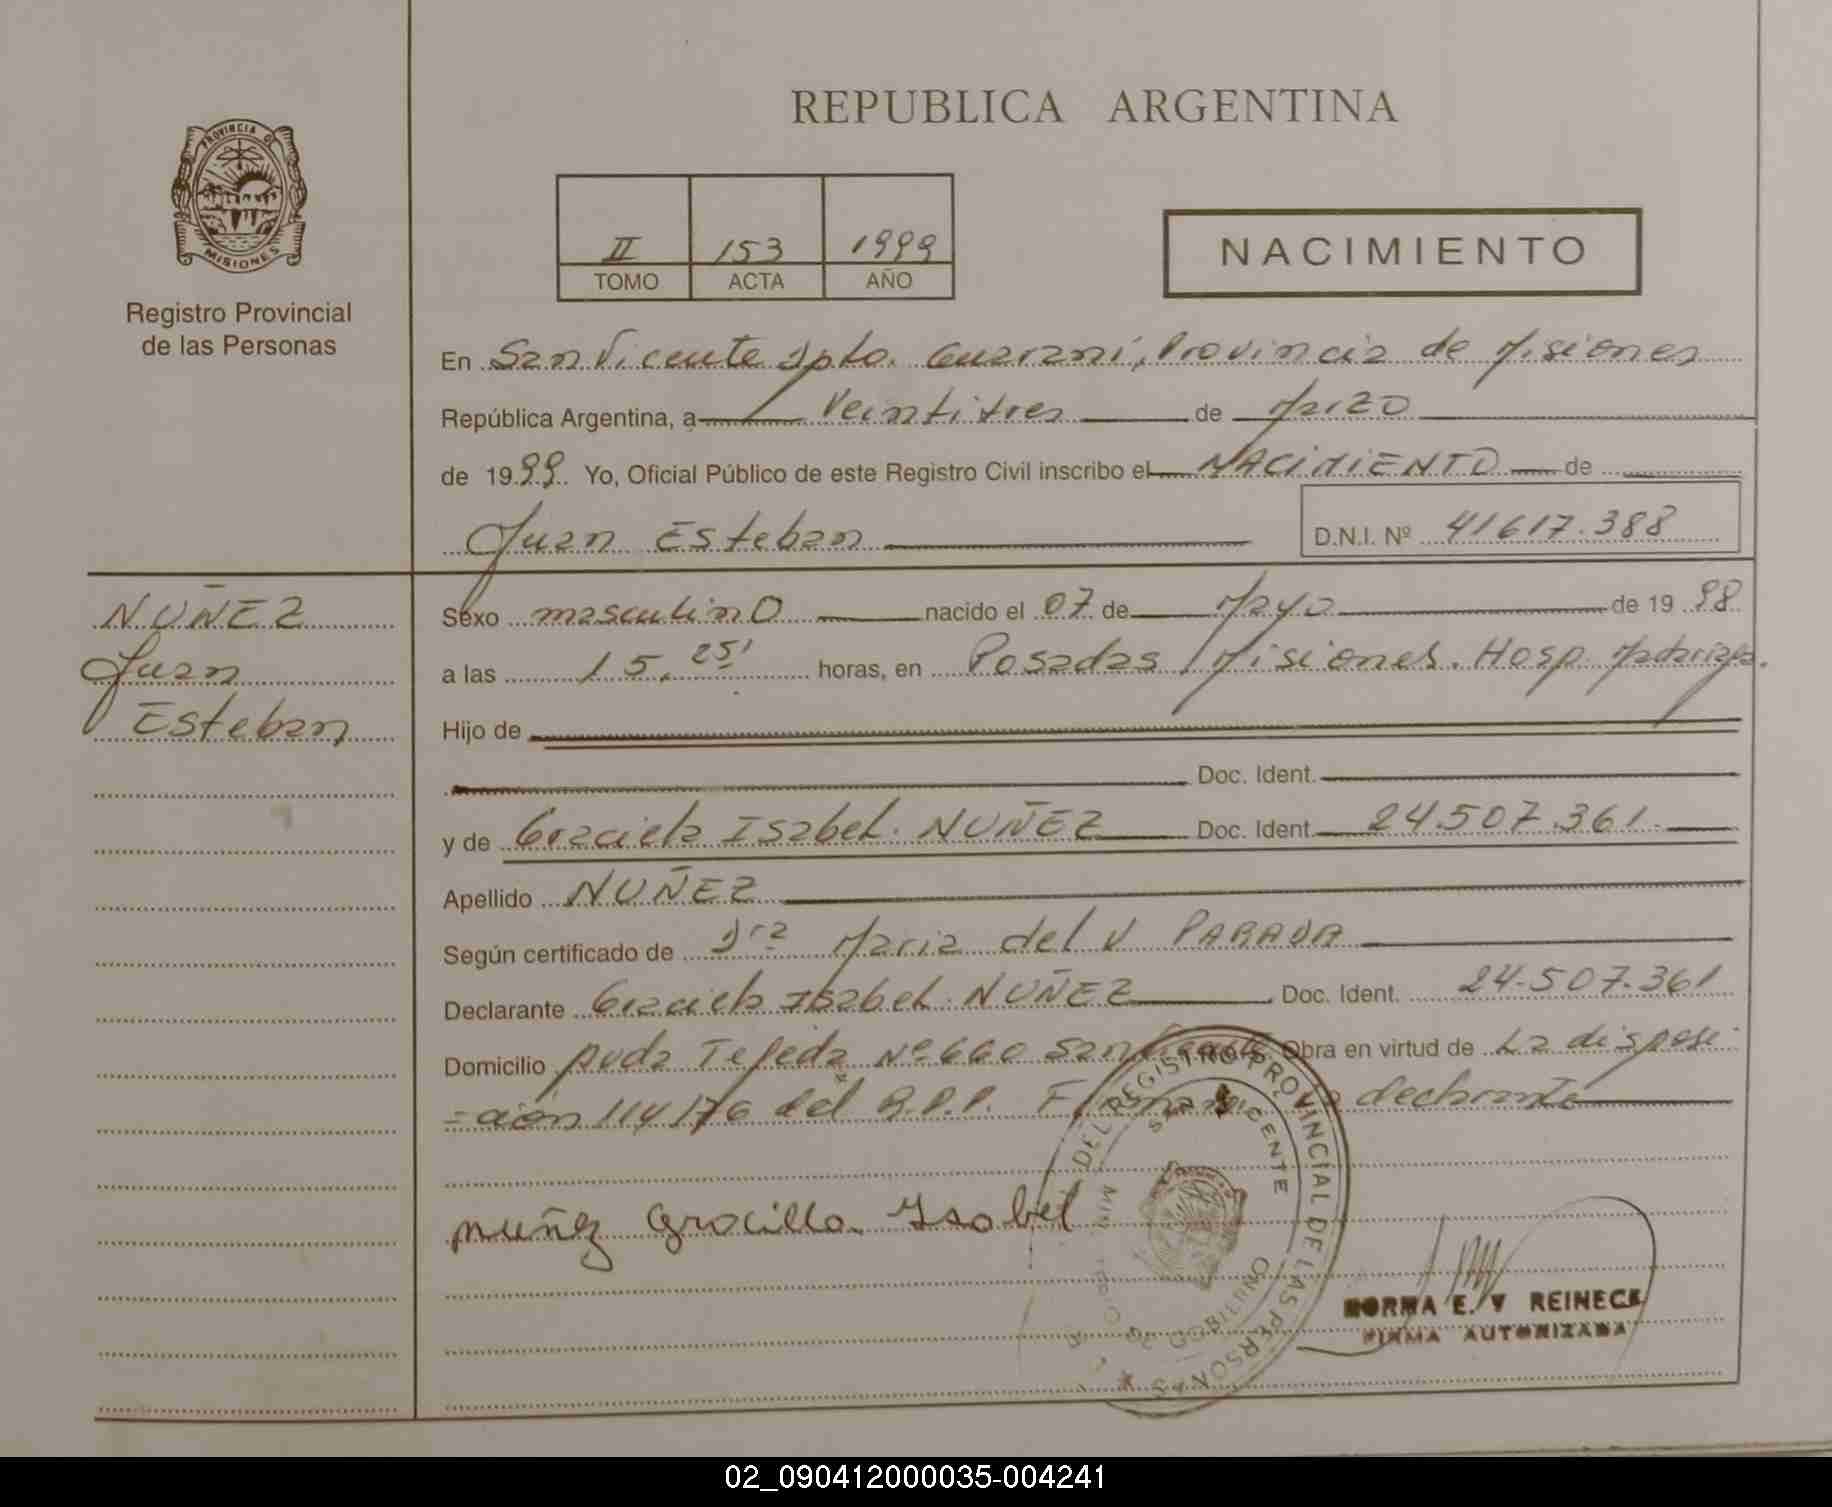 REPUBLICA ARGENTINA
PROVINCIA D
MISIONES
Registro Provincial
de las Personas
II 153 1999
TOMO ACTA AÑO
NACIMIENTO
En San Vicente Dpto. Guaraní, Provincia de Misiones
República Argentina, a Veintitres de Marzo
de 1999 Yo, Oficial Público de este Registro Civil inscribo el NACIMIENTO de
Juan Esteban
D.N.I. Nº 41617.388
NUÑEZ
Juan
Esteban
Sexo masculino nacido el 07 de Mayo de 1998
a las 15,25' horas, en Posadas Misiones. Hosp. Madariaga.
Hijo de
Doc. Ident.
y de Graciela Isabel NUÑEZ Doc. Ident. 24.507.361.
Apellido NUÑEZ
Según certificado de Dra Maria del V PARADA
Declarante Graciela Isabel NUÑEZ Doc. Ident. 24.507.361
Domicilio Avda Tejeda Nº 660 San Vicente. Obra en virtud de La disposi
=ción 114/76 del R.P.P. Firmando la declarante
nuñez Gracilla Isabel
DEL REGISTRO PROVINCIAL DE LAS PERSONAS
SAN VICENTE
GOBIERNO
NORMA E. V REINECK
FIRMA AUTORIZADA
02_090412000035-004241